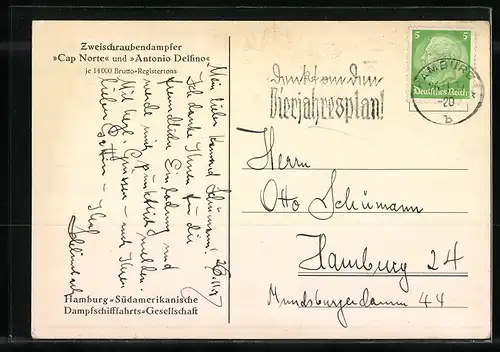 Zweischraubendampfer
»Cap Norte« und »Antonio Delfino«
je 14000 Brutto-Registertons
Mein lieber Kamerad Schümann!
Ich danke Ihnen für die
freundliche Einladung und
werde mich pünktlich melden.
Mit herzl. Grüssen – auch Ihrer
lieben Gattin – Ihr
Hamburg-Südamerikanische
Dampfschifffahrts-Gesellschaft
denkt an den
Vierjahresplan!
5 5
Deutsches Reich
HAMBURG
-20
b
Herrn
Otto Schümann
Hamburg 24
Mundsburgerdamm 44